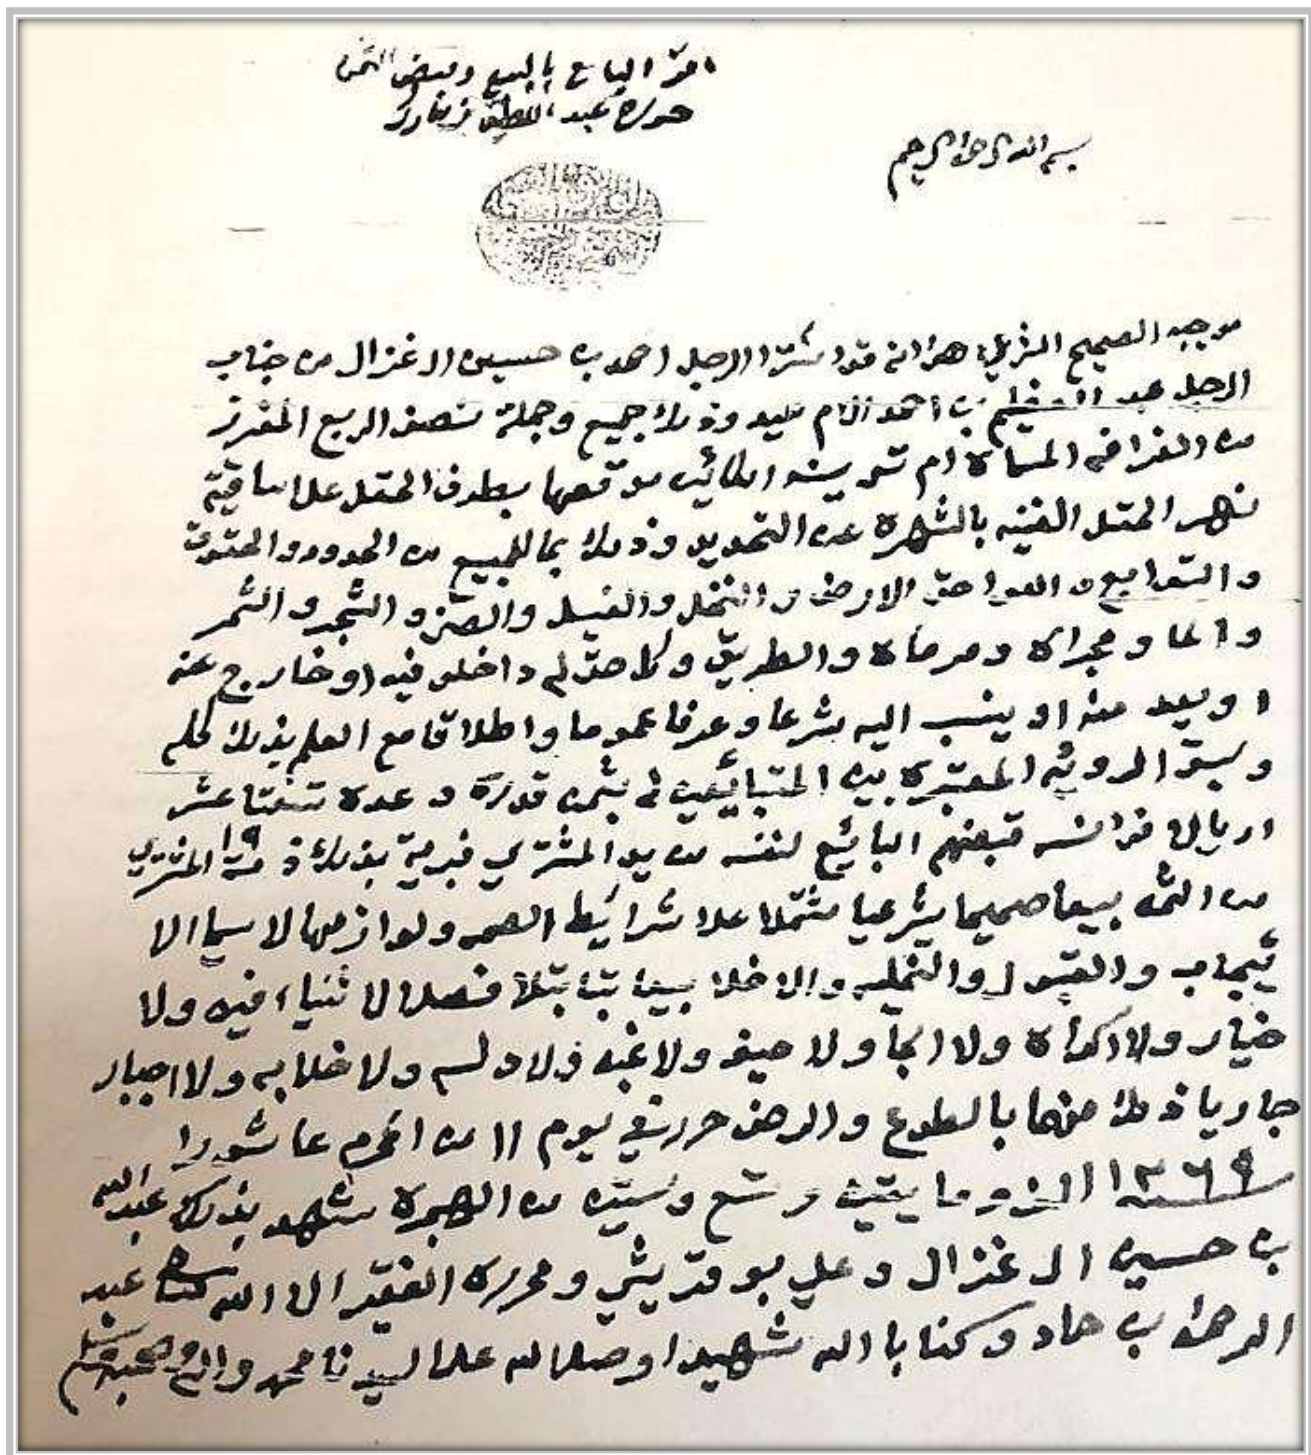 اقر البايع بالبيع وقبض الثمن
حرره عبد اللطيف
بسم الله الرحمن الرحيم
موجبه الصحيح الشرعي هو انه قد اشترا الرجل احمد بن حسين ال غزال من جناب
الرجل عبد العظيم بن احمد وذلك جميع وجملة نصف الربع المفرز
من الغرافه المسماة ام الكائن موقعها بطرف المحتل على ساقية
نهر المحتل الغنيه بالشهرة عن التحديد وذلك بما للمبيع من الحدود والحقوق
والتوابع و اللواحق الارض و النخل والفسيل والصرم و الشجر و الثمر
والما ومجراه ومرماه والطريق وكل حق له داخل فيه او خارج عنه
او يعد منه او ينسب اليه شرعا وعرفا عموما واطلاقا مع العلم بذلك كله
وسبق الرويه المعتبره بين المتبائعين له بثمن قدره و عدة عشر
اريال فرانسه قبضهم البائع لنفسه من يد المشتري فبرية بذلك ذمة المشتري
من الثمن بيعا صحيحا شرعيا مشتملا علا شرايط الصحه ولوازمها لا سيما الا
ئيجاب والقبول والتخليه والاخلا بيعا بتا بتلا فصلا لا ثنيا فيه ولا
خيار ولا اكراه ولا الجا ولا حيف ولا غبن ولا دلسه ولا خلابه ولا اجبار
جاريا ذلك منهما بالطوع والرضى حرر في يوم ١١ من المحرم عاشورا
سنة ١٢٦٩ الف و مايتين و تسع وستين من الهجرة شهد بذلك عبدالله
بن حسين ال غزال و علي بو قريش ومحرره الفقير الى الله عبد
الرحمن بن حماد وكفا بالله شهيدا وصلى الله على سيدنا محمد واله وصحبه وسلم